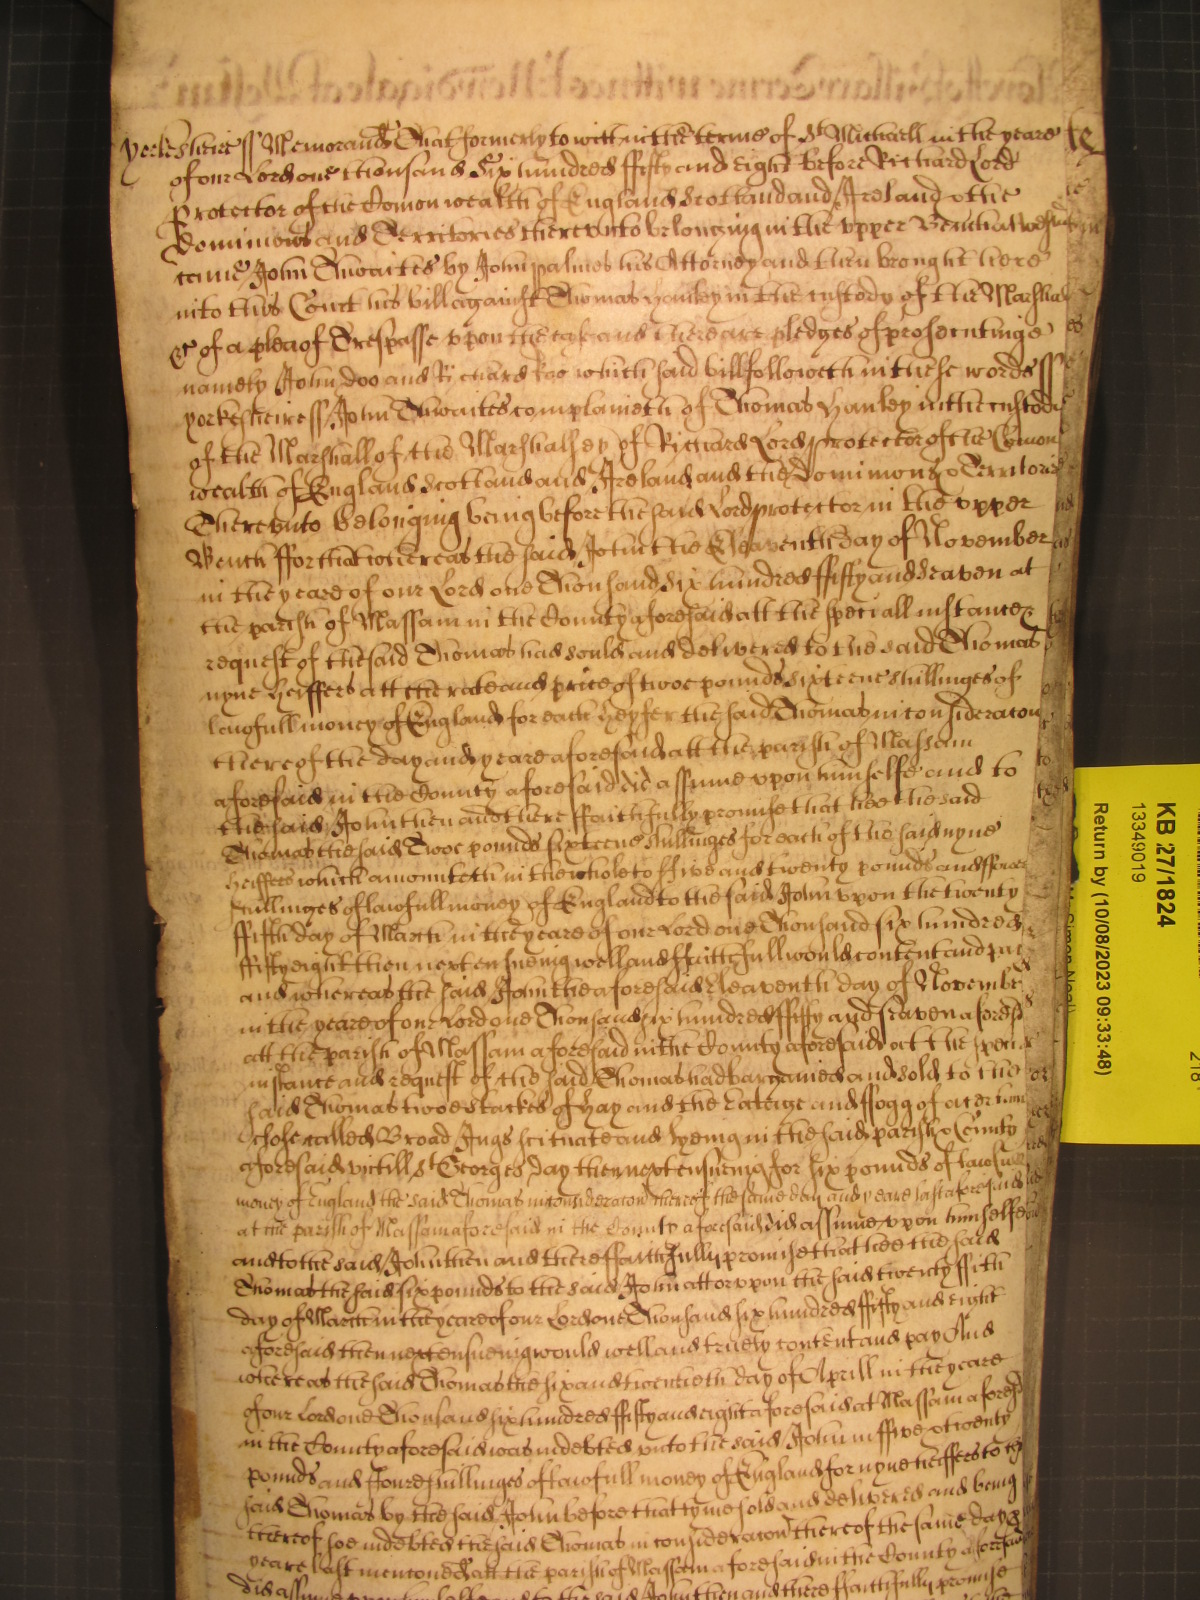 Yorkesheire ss Memorand That formerly to witt in the terme of St Michaell in the yeare
of our Lord one thousand Six hundred fifty and eight before Richard Lord
Protector of the Comon wealth of England Scotland and Ireland & the
Dominions and Territories thereunto belonging in the upper Bench at Westm
came John Thwaites by John palmes his Attorney and then brought here
into this Court his bill against Thomas Hanley in the custody of the Marshall
&c of a plea of Trespasse upon the case and there are pledges of prosecutinge
namely John Doo and Richard Roo which said bill followeth in these words ss
Yorkesheire ss John Thwaites complaineth of Thomas Hanley in the custody
of the Marshall of the Marshalsey of Richard Lord protector of the Comon
wealth of England Scotland and Ireland and the Dominions & Territories
Thereunto belonging being before the said Lord protector in the upper
Bench ffor that whereas the said John the Eleaventh day of November
in the yeare of our Lord one Thousand six hundred fifty and seaven at
the parish of Massam in the County aforesaid att the speciall instance &
request of the said Thomas had sould and delivered to the said Thomas
nyne heiffers att the rate and price of twoe pounds sixteene shillinges of
lawfull money of England for each heyfer the said Thomas in consideracon
thereof the day and yeare aforesaid att the parish of Massam
aforesaid in the County aforesaid did assume upon himselfe and to
the said John then and there faithfully promise that hee the said
Thomas the said Twoe pounds sixteene shillinges for each of the said nyne
heiffers which amounteth in the whole to ffive and twenty pounds and ffoure
shillinges of lawfull money of England to the said John upon the twenty
ffifth day of March in the yeare of our Lord one Thousand six hundred
ffifty eight then next ensueing well and faithfull would content and pay
and whereas the said John the aforesaid Eleaventh day of November
in the yeare of our Lord one Thousand six hundred ffifty and seaven aforesd
att the parish of Massam aforesaid in the County aforesaid att the speciall
instance and request of the said Thomas had bargained and sold to the
said Thomas twoe stackes of hay and the Eateage and ffogg of a certaine
close called Broad Ings scituate and lyeing in the said parish & County
aforesaid untill St Georges day then next ensueing for six pounds of lawfull
money of England the said Thomas in consideracon thereof the same day and yeare last aforesaid
at the parish of Massam aforesaid in the County aforesaid did assume upon himselfe
and to the said John then and there ffaithfully promise that hee the said
Thomas the said six pounds to the said John att or upon the said twenty ffifth
day of March in the yeare of our Lord one Thousand six hundred ffifty and eight
aforesaid then next ensueing would well and truely content and pay And
whereas the said Thomas the six and twentieth day of Aprill in the yeare
of our Lord one Thousand six hundred ffifty and eight aforesaid at Massam aforesd
in the County aforesaid was indebted unto the said John in ffive & twenty
pounds and foure shillinges of lawfull money of England for nyne heiffers to the
said Thomas by the said John before that tyme sold and delivered and being
thereof soe indebted the said Thomas in consideracon thereof the same day &
yeare last mentoned att the parish of Massam aforesaid in the County aforesaid
did assume upon himselfe and to the said John then and there ffaithfully promise
KB 27/1824
13349019
Return by (10/08/2023 09:33:48)
Simon Neal
218